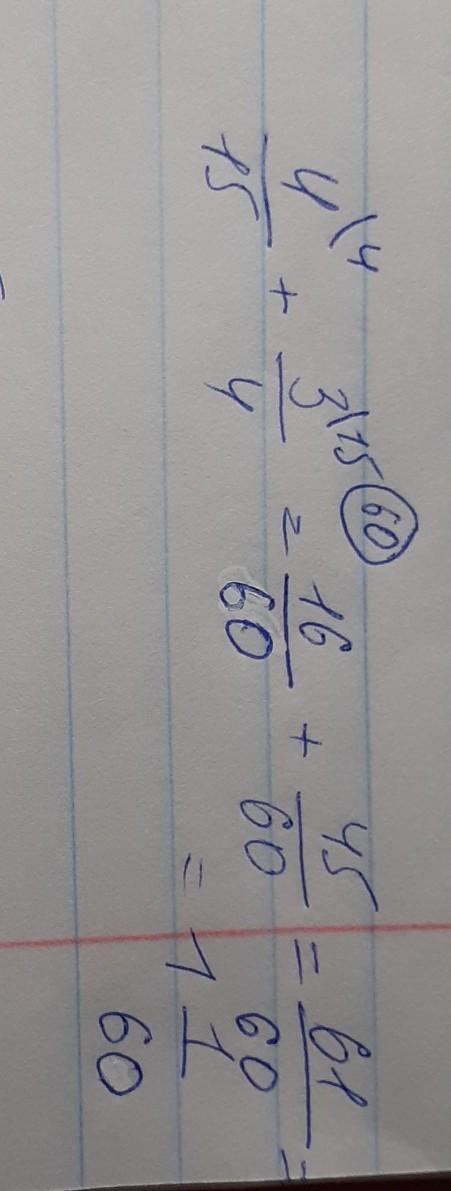 4\4/15 + 3\15/4 = (60) 16/60 + 45/60 = 61/60 =
= 1 1/60